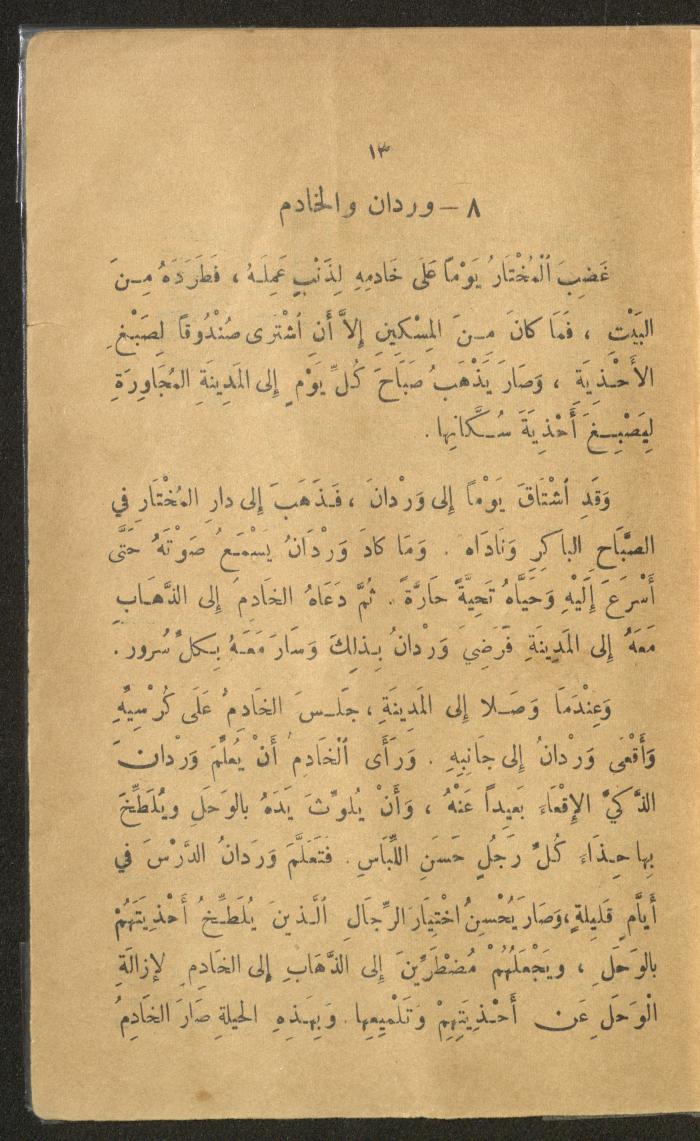 ١٣
٨ – وردان والخادم
غَضِبَ ٱلْمُخْتَارُ يَوْمًا عَلَى خَادِمِهِ لِذَنْبٍ عَمِلَهُ ، فَطَرَدَهُ مِـنَ
البَيْتِ ، فَمَا كانَ مِـنَ المِسْكِينِ إِلاَّ أَنِ ٱشْتَرى صُنْدُوقًا لِصَبْغِ
الأَحْـذِيَةِ ، وَصَارَ يَذْهَبُ صَبَاحَ كُلِّ يَوْمٍ إِلى المَدِينَةِ المُجَاوِرَةِ
لِيَصْبِـغَ أَحْذِيَةَ سُـكَّانِها .
وَقَدِ ٱشْتَاقَ يَوْمًا إِلى وَرْدَانَ ، فَـذَهَبَ إِلى دارِ المُخْتَارِ في
الصَّبَاحِ الباكِرِ وَنَادَاه . وَمَا كادَ وَرْدَانُ يَسْمَـعُ صَوْتَهُ حَتَّى
أَسْرَعَ إِلَيْهِ وَحَيَّاهُ تَحِيَّةً حَارَّةً . ثُمَّ دَعَاهُ الخَادِمُ إِلى الذَّهَـابِ
مَعَهُ إِلى المَدِينَةِ فَرَضِيَ وَرْدانُ بِـذلِكَ وَسَارَ مَعَـهُ بِـكلِّ سُرور .
وَعِنْدَمَا وَصَـلا إِلى المَدِينَةِ ، جَلَـسَ الخَادِمُ عَلَى كُرْسِيِّهِ
وَأَقْعَى وَرْدانُ إِلى جَانِبِهِ . وَرَأَى ٱلْخَادِمُ أَنْ يُعَلِّمَ وَرْدانَ
الذَّكيَّ الإِقْعَاءَ بَعِيداً عَنْهُ ، وَأَنْ يُلوِّثَ يَدَهُ بالوَحَلِ ويُلَطِّخَ
بِها حِـذَاءَ كُلِّ رَجُلٍ حَسَنِ اللِّبَاسِ . فَتَعَلَّمَ وَرْدانُ الدَّرْسَ في
أَيَّامٍ قَلِيلةٍ ، وَصَارَ يُحْسِنُ اخْتِيَارَ الرِّجَالِ ٱلَّـذينَ يُلَطِّـخُ أَحْذِيَتَهُمْ
بالوَحَلِ ، ويَجْعَلُهُمْ مُضْطَرِّينَ إِلى الذَّهَابِ إِلى الخَادِمِ لإزالَةِ
الْوَحَلِ عَن أَحْـذِيَتِهِمْ وَتَلْمِيعِها . وَبِهـذِهِ الحِيلةِ صَارَ الخَادِمُ